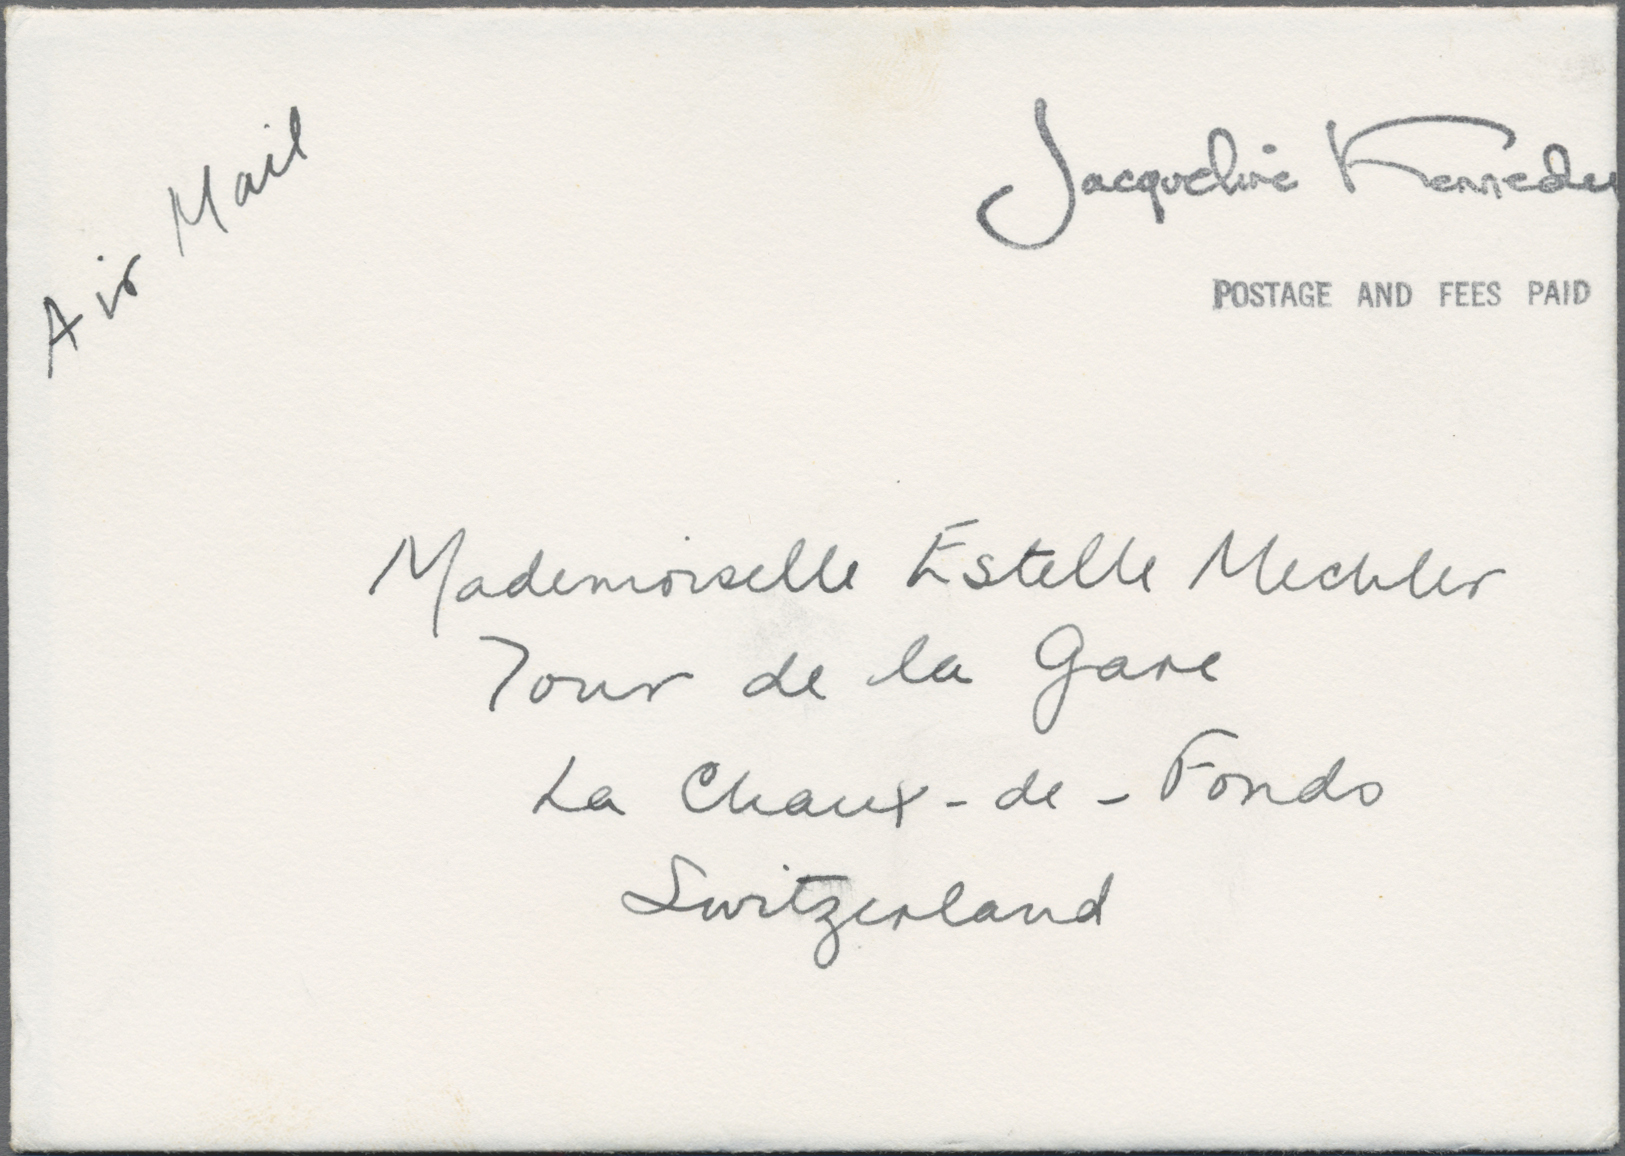 Air Mail
Jacqueline Kennedy
POSTAGE AND FEES PAID
Mademoiselle Estelle Mechler
Tour de la Gare
La Chaux-de-Fonds
Switzerland